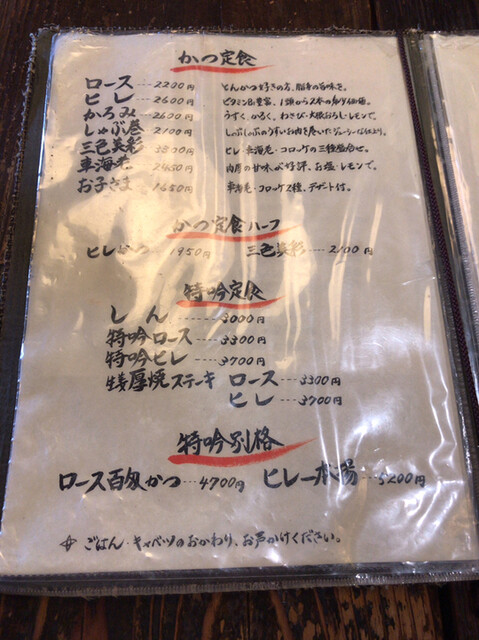 かつ定食
ロース---2200円 とんかつ好きの方、脂身の旨味を。
ヒレ---2600円 ビタミンB1豊富、1頭から2本の
かろみ---2600円 うすく、かろく、わさび・大根おろし・レモンで。
しゃぶ巻---2100円 しゃぶしゃぶのうすいお肉を巻いたジューシーな仕上り。
三色美彩---3800円 ヒレ・車海老・コロッケの三種盛合せ。
車海老---2450円 肉厚の甘味が好評、お塩・レモンで。
お子さま---1650円 車海老・コロッケ2種、デザート付。
かつ定食ハーフ
ヒレかつ---1950円 三色美彩---2100円
特吟定食
しん---3000円
特吟ロース---3300円
特吟ヒレ---3700円
生姜厚焼ステーキ ロース---3300円
ヒレ---3700円
特吟別格
ロース百匁かつ---4700円 ヒレ一本揚---5200円
ごはん・キャベツのおかわり、お声かけください。